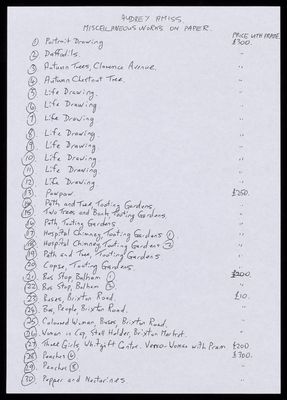 AUDREY AMISS.
MISCELLANEOUS WORKS ON PAPER.
PRICE WITH FRAME
1 Portrait Drawing £300.
2 Daffodils. "
3 Autumn Trees, Clarence Avenue. "
4 Autumn Chestnut Tree. "
5 Life Drawing. "
6 Life Drawing. "
7 Life Drawing "
8 Life Drawing. "
9 Life Drawing. "
10 Life Drawing. "
11 Life Drawing. "
12 Life Drawing "
13 Pawpaw. £250.
14 Path and Tree, Tooting Gardens. "
15 Two Trees and Bank, Tooting Gardens. "
16 Path Tooting Gardens "
17 Hospital Chimney, Tooting Gardens 1 "
18 Hospital Chimney, Tooting Gardens 2 "
19 Path and Tree, Tooting Gardens "
20 Copse, Tooting Gardens "
21 Bus Stop, Balham 1 £200.
22 Bus Stop, Balham 2 "
23 Buses, Brixton Road. £10.
24 Bus, People, Brixton Road. "
25 Coloured Woman, Buses, Brixton Road. "
26 Woman in Cap, Stall Holder, Brixton Market. "
27 Three Girls, Whitgift Centre. Verso-Woman with Pram £200
28 Peaches £300.
29 Peaches "
30 Pepper and Nectarines "